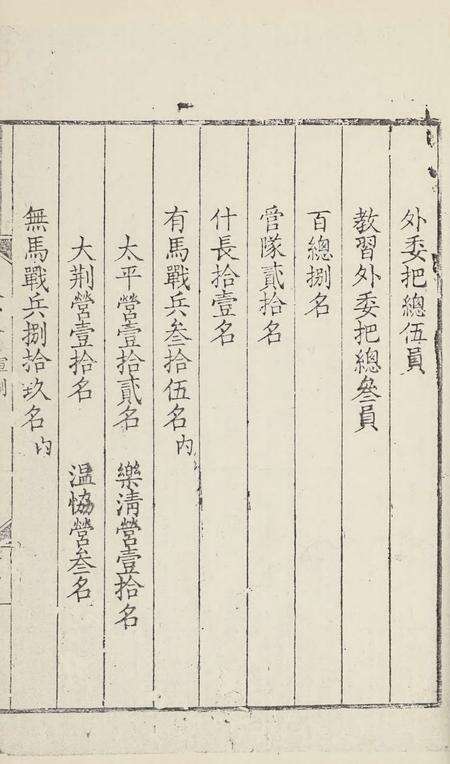 外委把總伍員
教習外委把總叄員
百總捌名
管隊貳拾名
什長拾壹名
有馬戰兵叄拾伍名內
太平營壹拾貳名 樂清營壹拾名
大荆營壹拾名 溫協營叄名
無馬戰兵捌拾玖名內